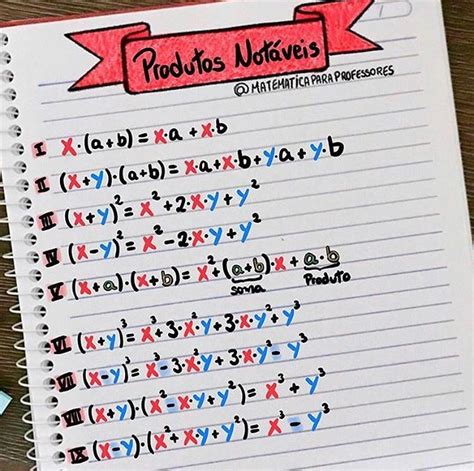 Produtos Notáveis
@MATEMATICAPARAPROFESSORES
I x·(a+b)=x·a+x·b
II (x+y)·(a+b)=x·a+x·b+y·a+y·b
III (x+y)²=x²+2·x·y+y²
IV (x-y)²=x²-2·x·y+y²
V (x+a)·(x+b)=x²+(a+b)·x+a·b
soma Produto
VI (x+y)³=x³+3·x²·y+3·x·y²+y³
VII (x-y)³=x³-3·x²·y+3·x·y²-y³
VIII (x+y)·(x²-x·y+y²)=x³+y³
IX (x-y)·(x²+x·y+y²)=x³-y³